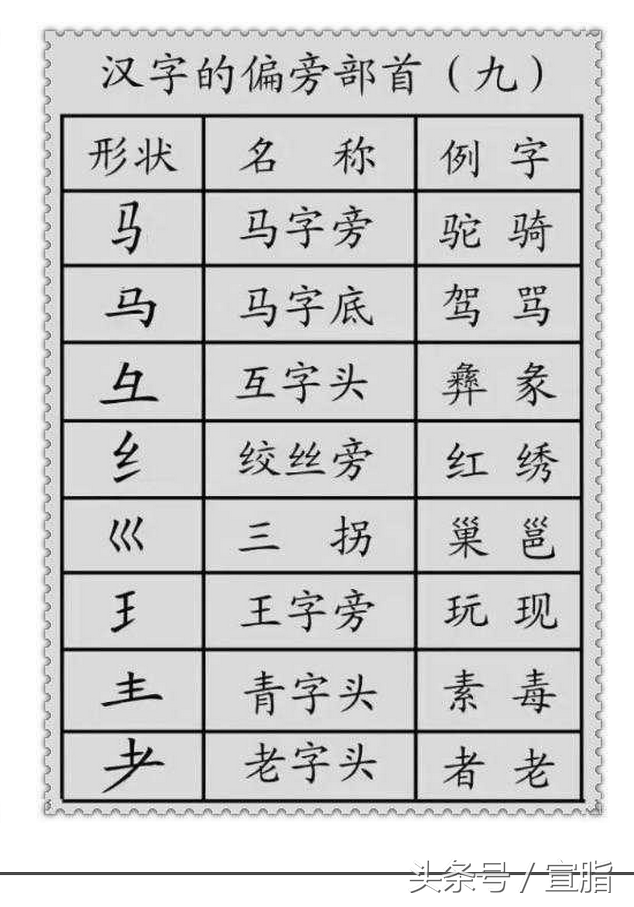 汉字的偏旁部首（九）
形状 名称 例字
马 马字旁 驼 骑
马 马字底 驾 骂
彑 互字头 彝 彖
纟 绞丝旁 红 绣
巛 三拐 巢 邕
王 王字旁 玩 现
龶 青字头 素 毒
耂 老字头 者 老
头条号 / 宣脂